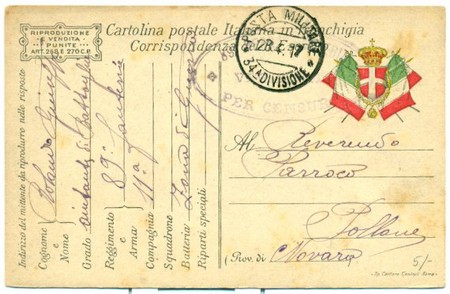 RIPRODUZIONE
E VENDITA
PUNITE
ART. 268 E 270 C.P.
Cartolina postale Italiana in Franchigia
Corrispondenza
POSTA MILITARE
28 17
34A DIVISIONE
PER CENSURA
Indirizzo del mittente da riprodurre nelle risposte
Cognome
e
Nome
Grado
Reggimento 89° Fanteria
e
Arma
Compagnia 11a
Squadrone
Batteria Zona di Guerra
Riparti speciali
Al Reverendo
Parroco
Pollone
(Prov. di Novara)
5/-